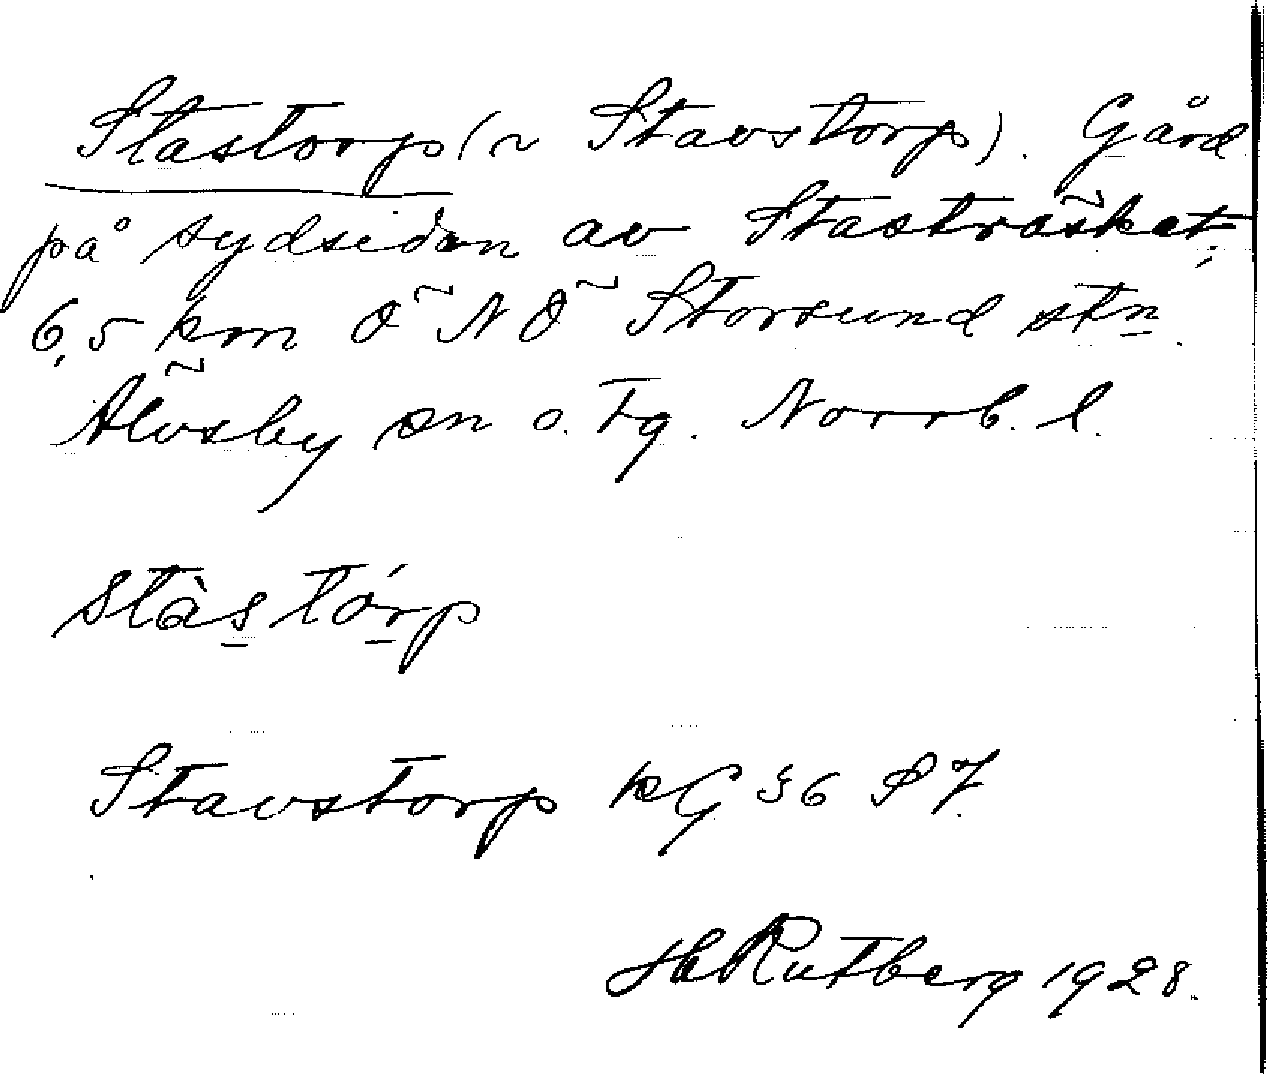 Stastorp (~ Stavstorp). Gård
på sydsidan av Stasträsket,
6,5 km Ö N Ö Storsund stn.
Älvsby sn o. tg. Norrb. l.
stàstórp
Stavstorp kG 36 S 7.
H Rutberg 1928.